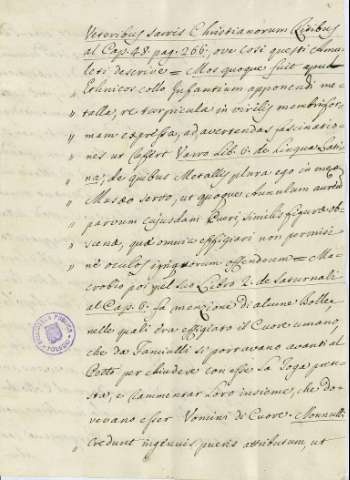 Veteribus sacris Christianorum Ritibus
al Cap. 48. pag. 266, ove così questi Amu-
leti descrive = Mos quoque fuit apud
Ethnicos collo Infantium apponendi me-
talla, re turpicula in virilis membri for-
mam expressa, ad avertendas fascinatio-
nes ut asserit Varro Lib. 6. de Lingua Lati-
na; de quibus Metallis plura ego in
Musæo servo, ut quoque Annulum aureum
parvum cujusdam Pueri, similis figuræ ob-
scenæ, quæ omnia effigiari non permisi
nè oculos offendorem = Ma-
crobio poi nel suo Libro 2. de Saturnali
al Cap. 6. fa menzione di alcune Bolle,
nelle quali era effigiato il Cuore umano,
che da Fanciulli si portavano avanti al
Petto per chiudere con esse la Toga pre-
sta, e rammentar loro insieme, che do-
vevano esser Uomini di Cuore = Nonnulli
credunt ingenuis pueris attributum, ut
BIBLIOTECA PUBLICA
TOLEDO